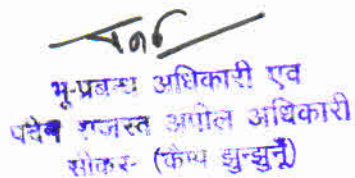 भू-प्रबन्ध अधिकारी एव
पदेन राजस्व अपील अधिकारी
सीकर- (कैम्प झुन्झुनूँ)